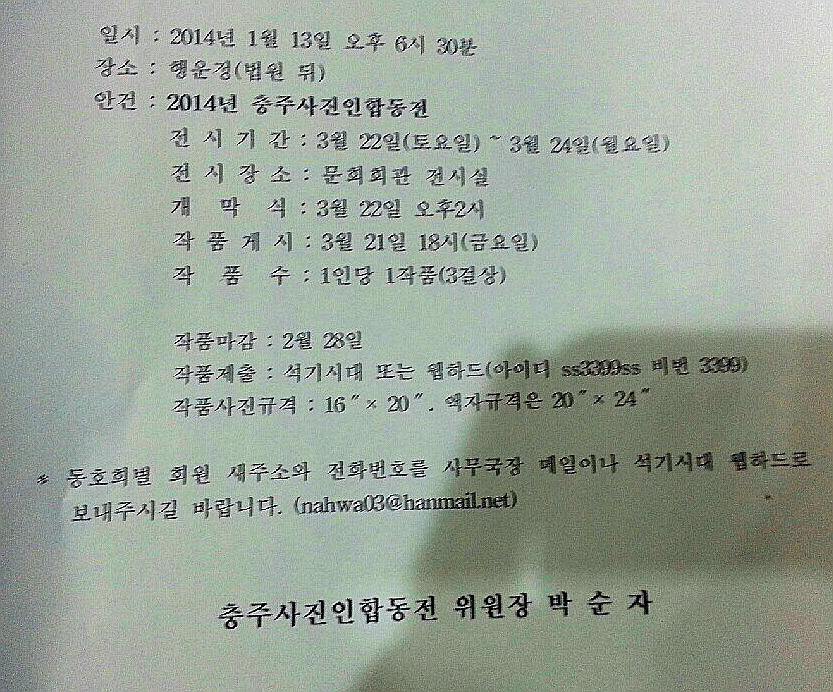 일시 : 2014년 1월 13일 오후 6시 30분
장소 : 행운정(법원 뒤)
안건 : 2014년 충주사진인합동전
전 시 기 간 : 3월 22일(토요일) ~ 3월 24일(월요일)
전 시 장 소 : 문회회관 전시실
개 막 식 : 3월 22일 오후2시
작 품 게 시 : 3월 21일 18시(금요일)
작 품 수 : 1인당 1작품(3걸상)
작품마감 : 2월 28일
작품제출 : 석기시대 또는 웹하드(아이디 ss3399ss 비번 3399)
작품사진규격 : 16″× 20″. 액자규격은 20″× 24″
* 동호회별 회원 새주소와 전화번호를 사무국장 메일이나 석기시대 웹하드로
보내주시길 바랍니다. (nahwa03@hanmail.net)
충주사진인합동전 위원장 박 순 자